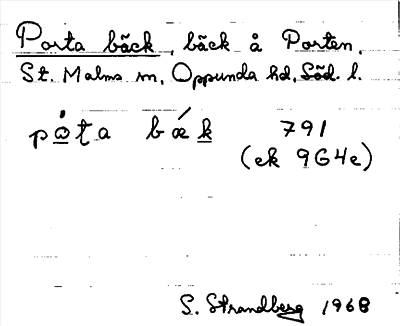 Porta bäck, bäck å Porten,
St. Malms sn, Oppunda hd, Söd. l.
pȯta bǽk 791
(ek 9G4e)
S. Strandberg 1968